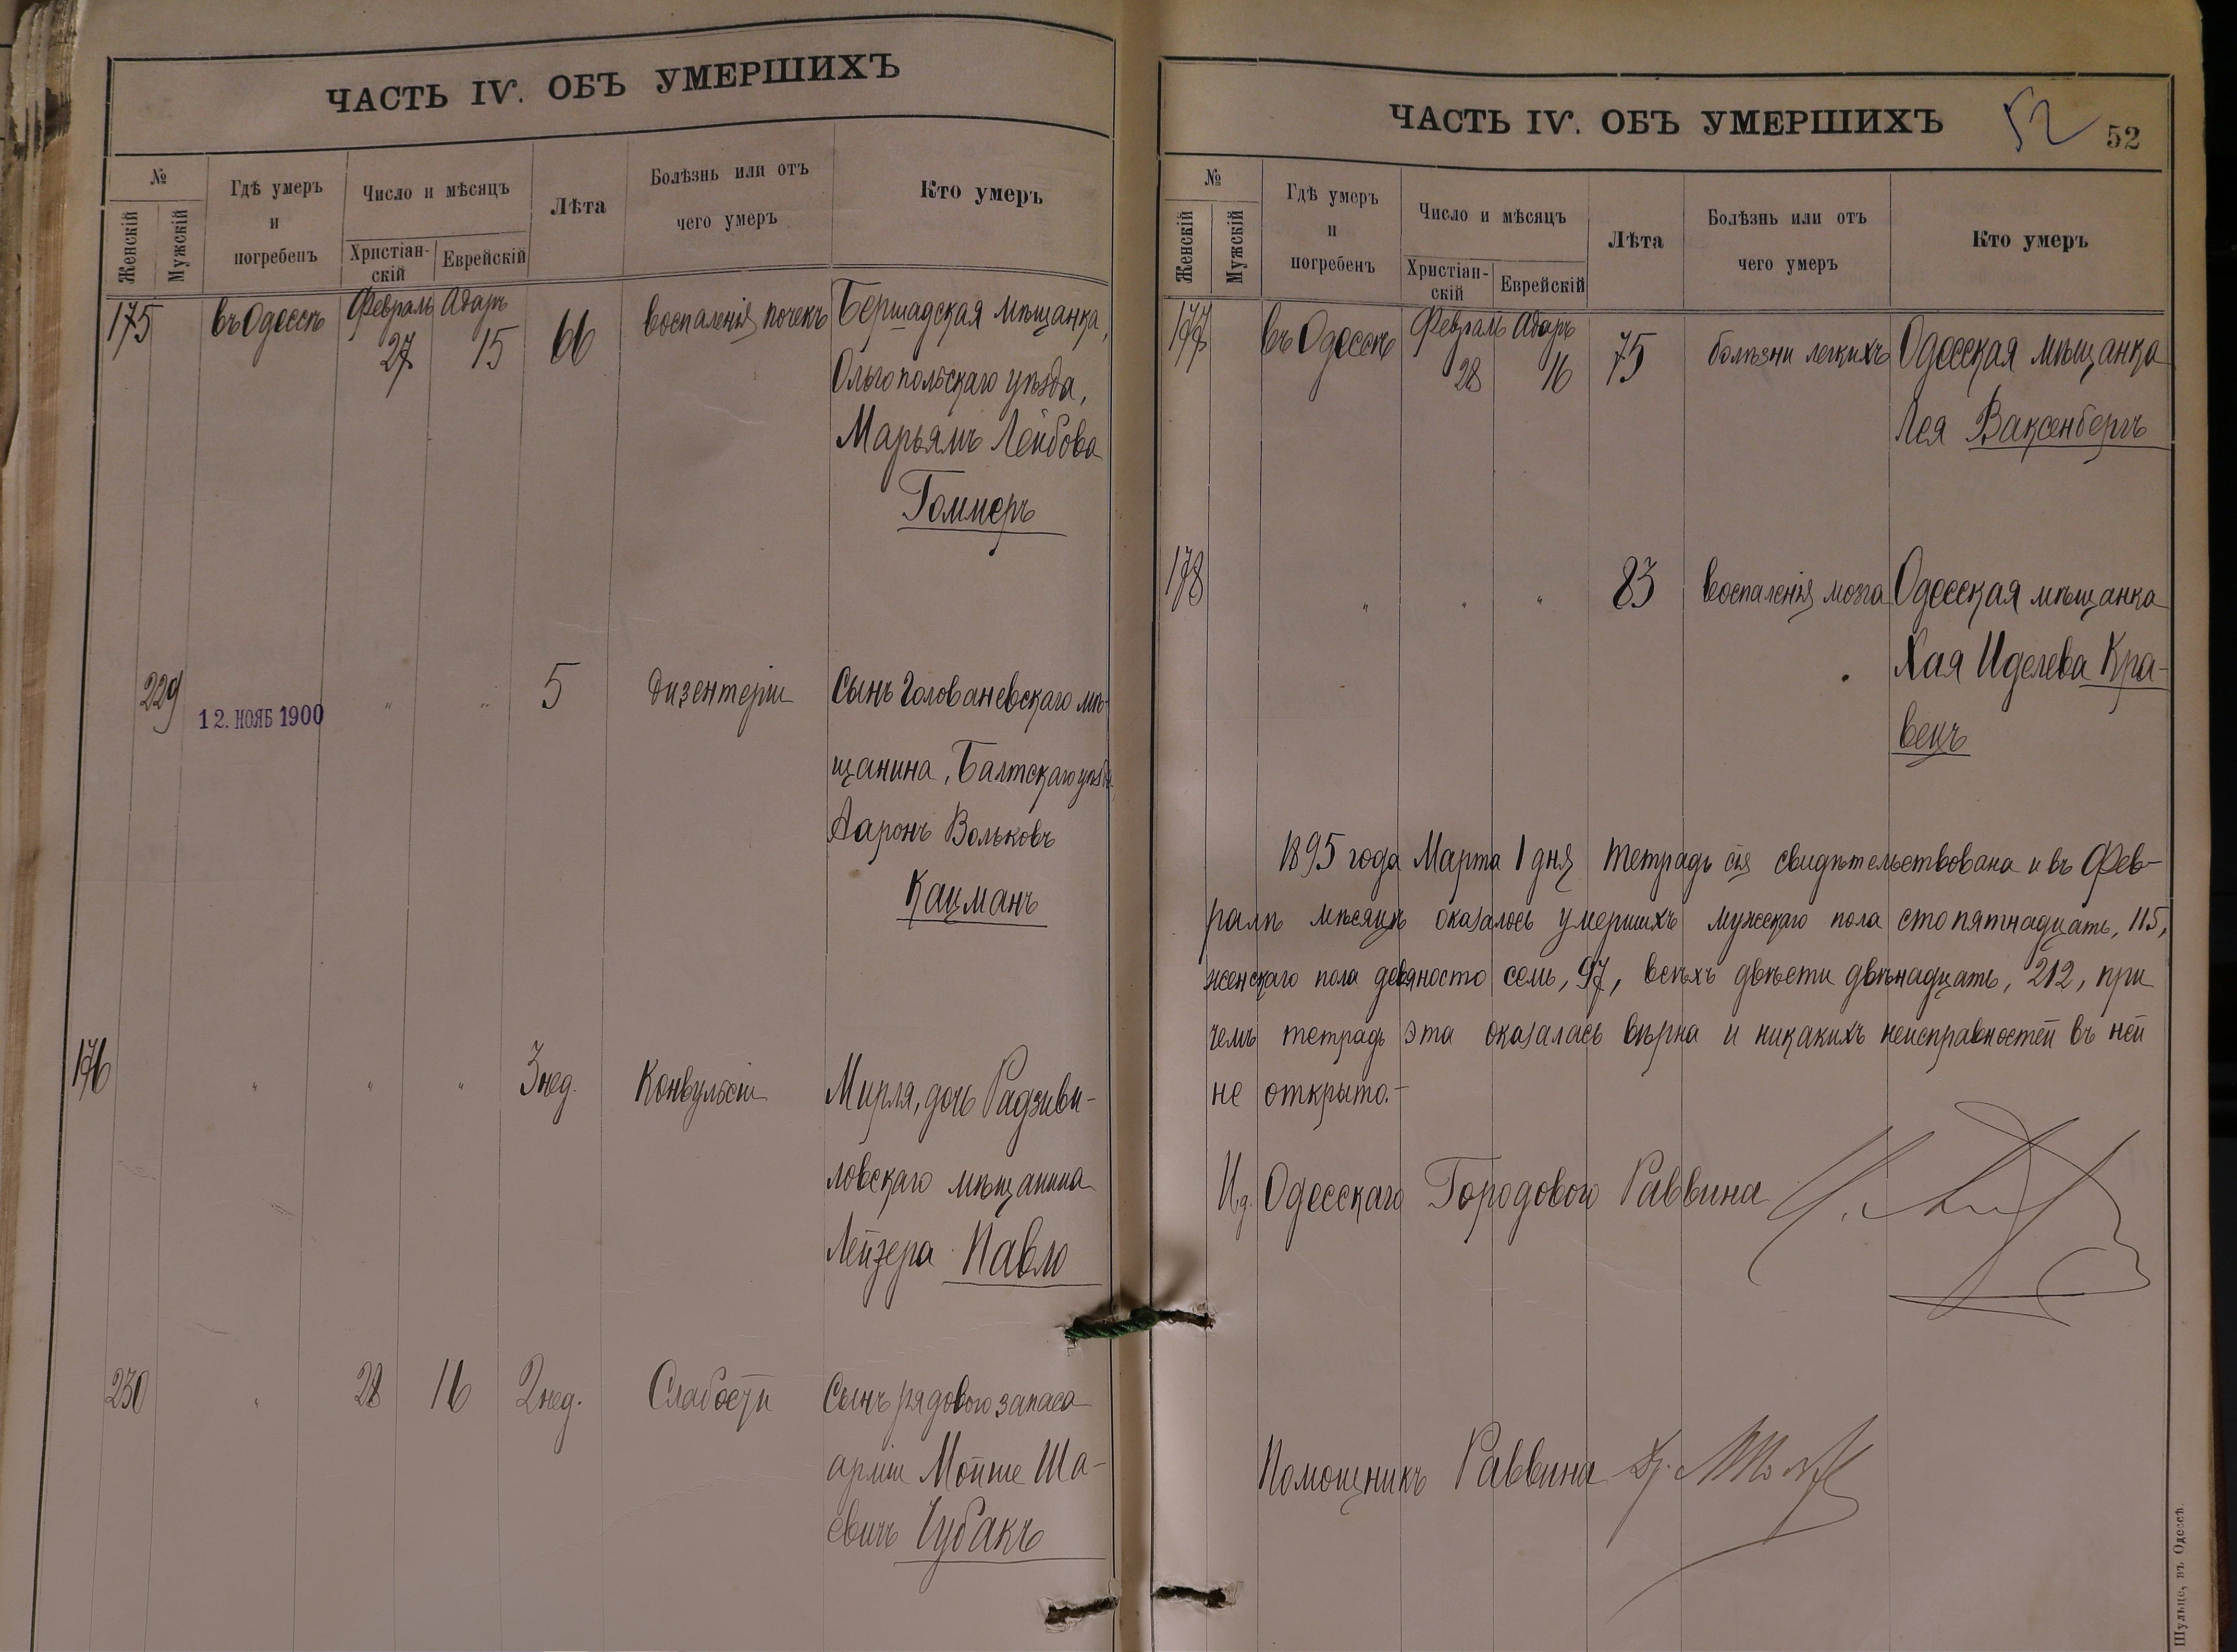 ЧАСТЬ IV. ОБЪ УМЕРШИХЪ
№
Женскій
Мужскій
Гдѣ умеръ
и
погребенъ
Число и мѣсяцъ
Христіан-
скій
Еврейскій
Лѣта
Болѣзнь или отъ
чего умеръ
Кто умеръ
175 въ Одессѣ Февраль Адаръ 66 воспаленія почекъ Бершадская мѣщанка,
27 15 Ольгопольскаго уѣзда,
Марьямъ Лейбова
Гоммеръ
229 " " 5 дизентеріи Сынъ Голованевскаго мѣ-
12. НОЯБ 1900
щанина, Балтскаго уѣзда,
Ааронъ Вольковъ
Кацманъ
176 " " " 3 нед. Конвульсіи Мирля, дочь Радзиви-
ловскаго мѣщанина
Лейзера Павло
230 " 28 16 2 нед. Слабости Сынъ рядового запаса
арміи Мойше Ша-
евичъ Чубакъ
ЧАСТЬ IV. ОБЪ УМЕРШИХЪ 52
52
№
Женскій
Мужскій
Гдѣ умеръ
и
погребенъ
Число и мѣсяцъ
Христіан-
скій
Еврейскій
Лѣта
Болѣзнь или отъ
чего умеръ
Кто умеръ
177 въ Одессѣ Февраль Адаръ 75 болѣзни легкихъ Одесская мѣщанка
28 16
Лея Ваксенбергъ
178 " " " 83 воспаленія мозга Одесская мѣщанка
Хая Иделева Кра-
вецъ
1895 года Марта 1 дня тетрадь сія свидѣтельствована и въ Фев-
ралѣ мѣсяцѣ оказалось умершихъ мужскаго пола сто пятнадцать, 115,
женскаго пола девяносто семь, 97, всѣхъ двѣсти двѣнадцать, 212, при
чемъ тетрадь эта оказалась вѣрна и никакихъ неисправностей въ ней
не открыто.-
И.д. Одесскаго Городового Раввина
Помощникъ Раввина
Шульце, въ Одессѣ.